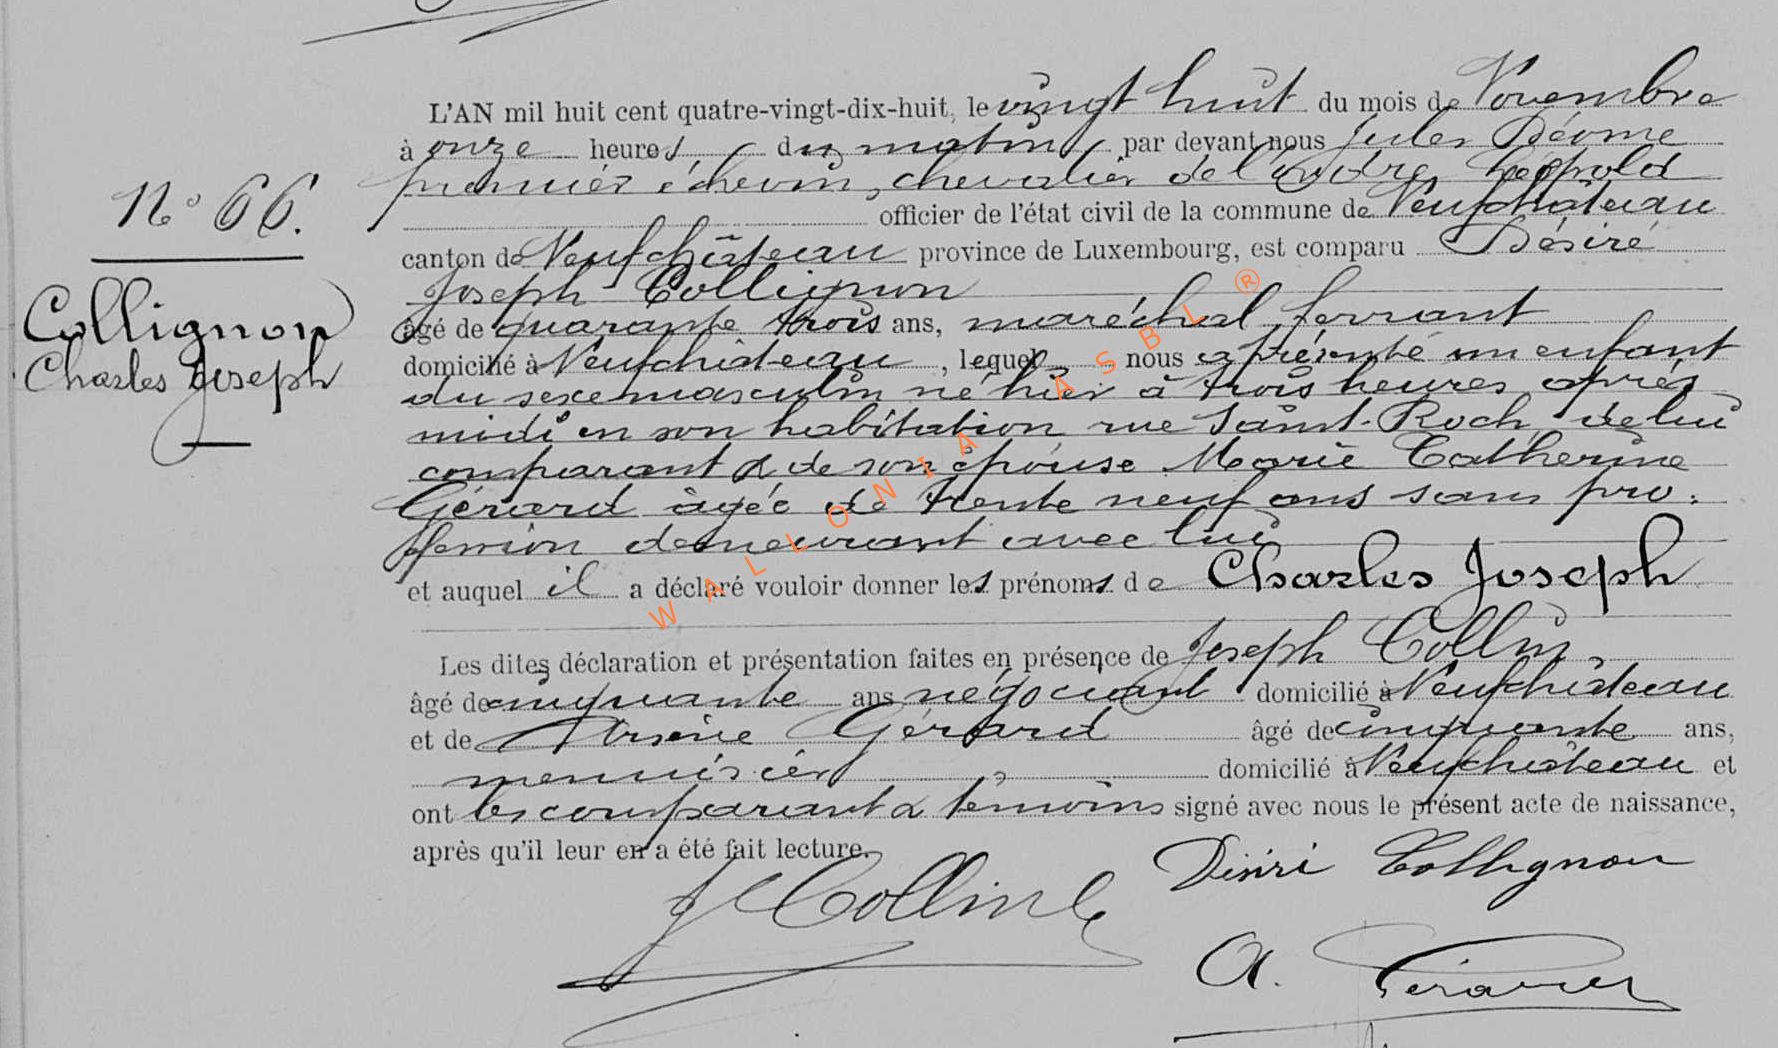 L'AN mil huit cent quatre-vingt-dix-huit, le vingt huit du mois de Novembre
à onze heures du matin par devant nous Jules Déome
premier échevin, chevalier de l'ordre Léopold
N° 66.
officier de l'état civil de la commune de Neufchâteau
canton de Neufchâteau province de Luxembourg, est comparu Désiré
Joseph Collignon
Collignon
Charles Joseph
âgé de quarante trois ans, maréchal ferrant
domicilié à Neufchâteau, lequel nous a présenté un enfant
du sexe masculin né hier à trois heures après
midi en son habitation rue Saint-Roch, de lui
comparant & de son épouse Marie Catherine
Gérard âgée de trente neuf ans sans pro-
fession demeurant avec lui
et auquel il a déclaré vouloir donner les prénoms de Charles Joseph
Les dites déclaration et présentation faites en présence de Joseph Collin,
âgé de cinquante ans négociant domicilié à Neufchâteau
et de Arsène Gérard âgé de cinquante ans,
menuisier, domicilié à Neufchâteau et
ont les comparant & témoins signé avec nous le présent acte de naissance,
après qu'il leur en a été fait lecture.
J Collin
Désiré Collignon
A. Gérard
WALLONIA ASBL ®